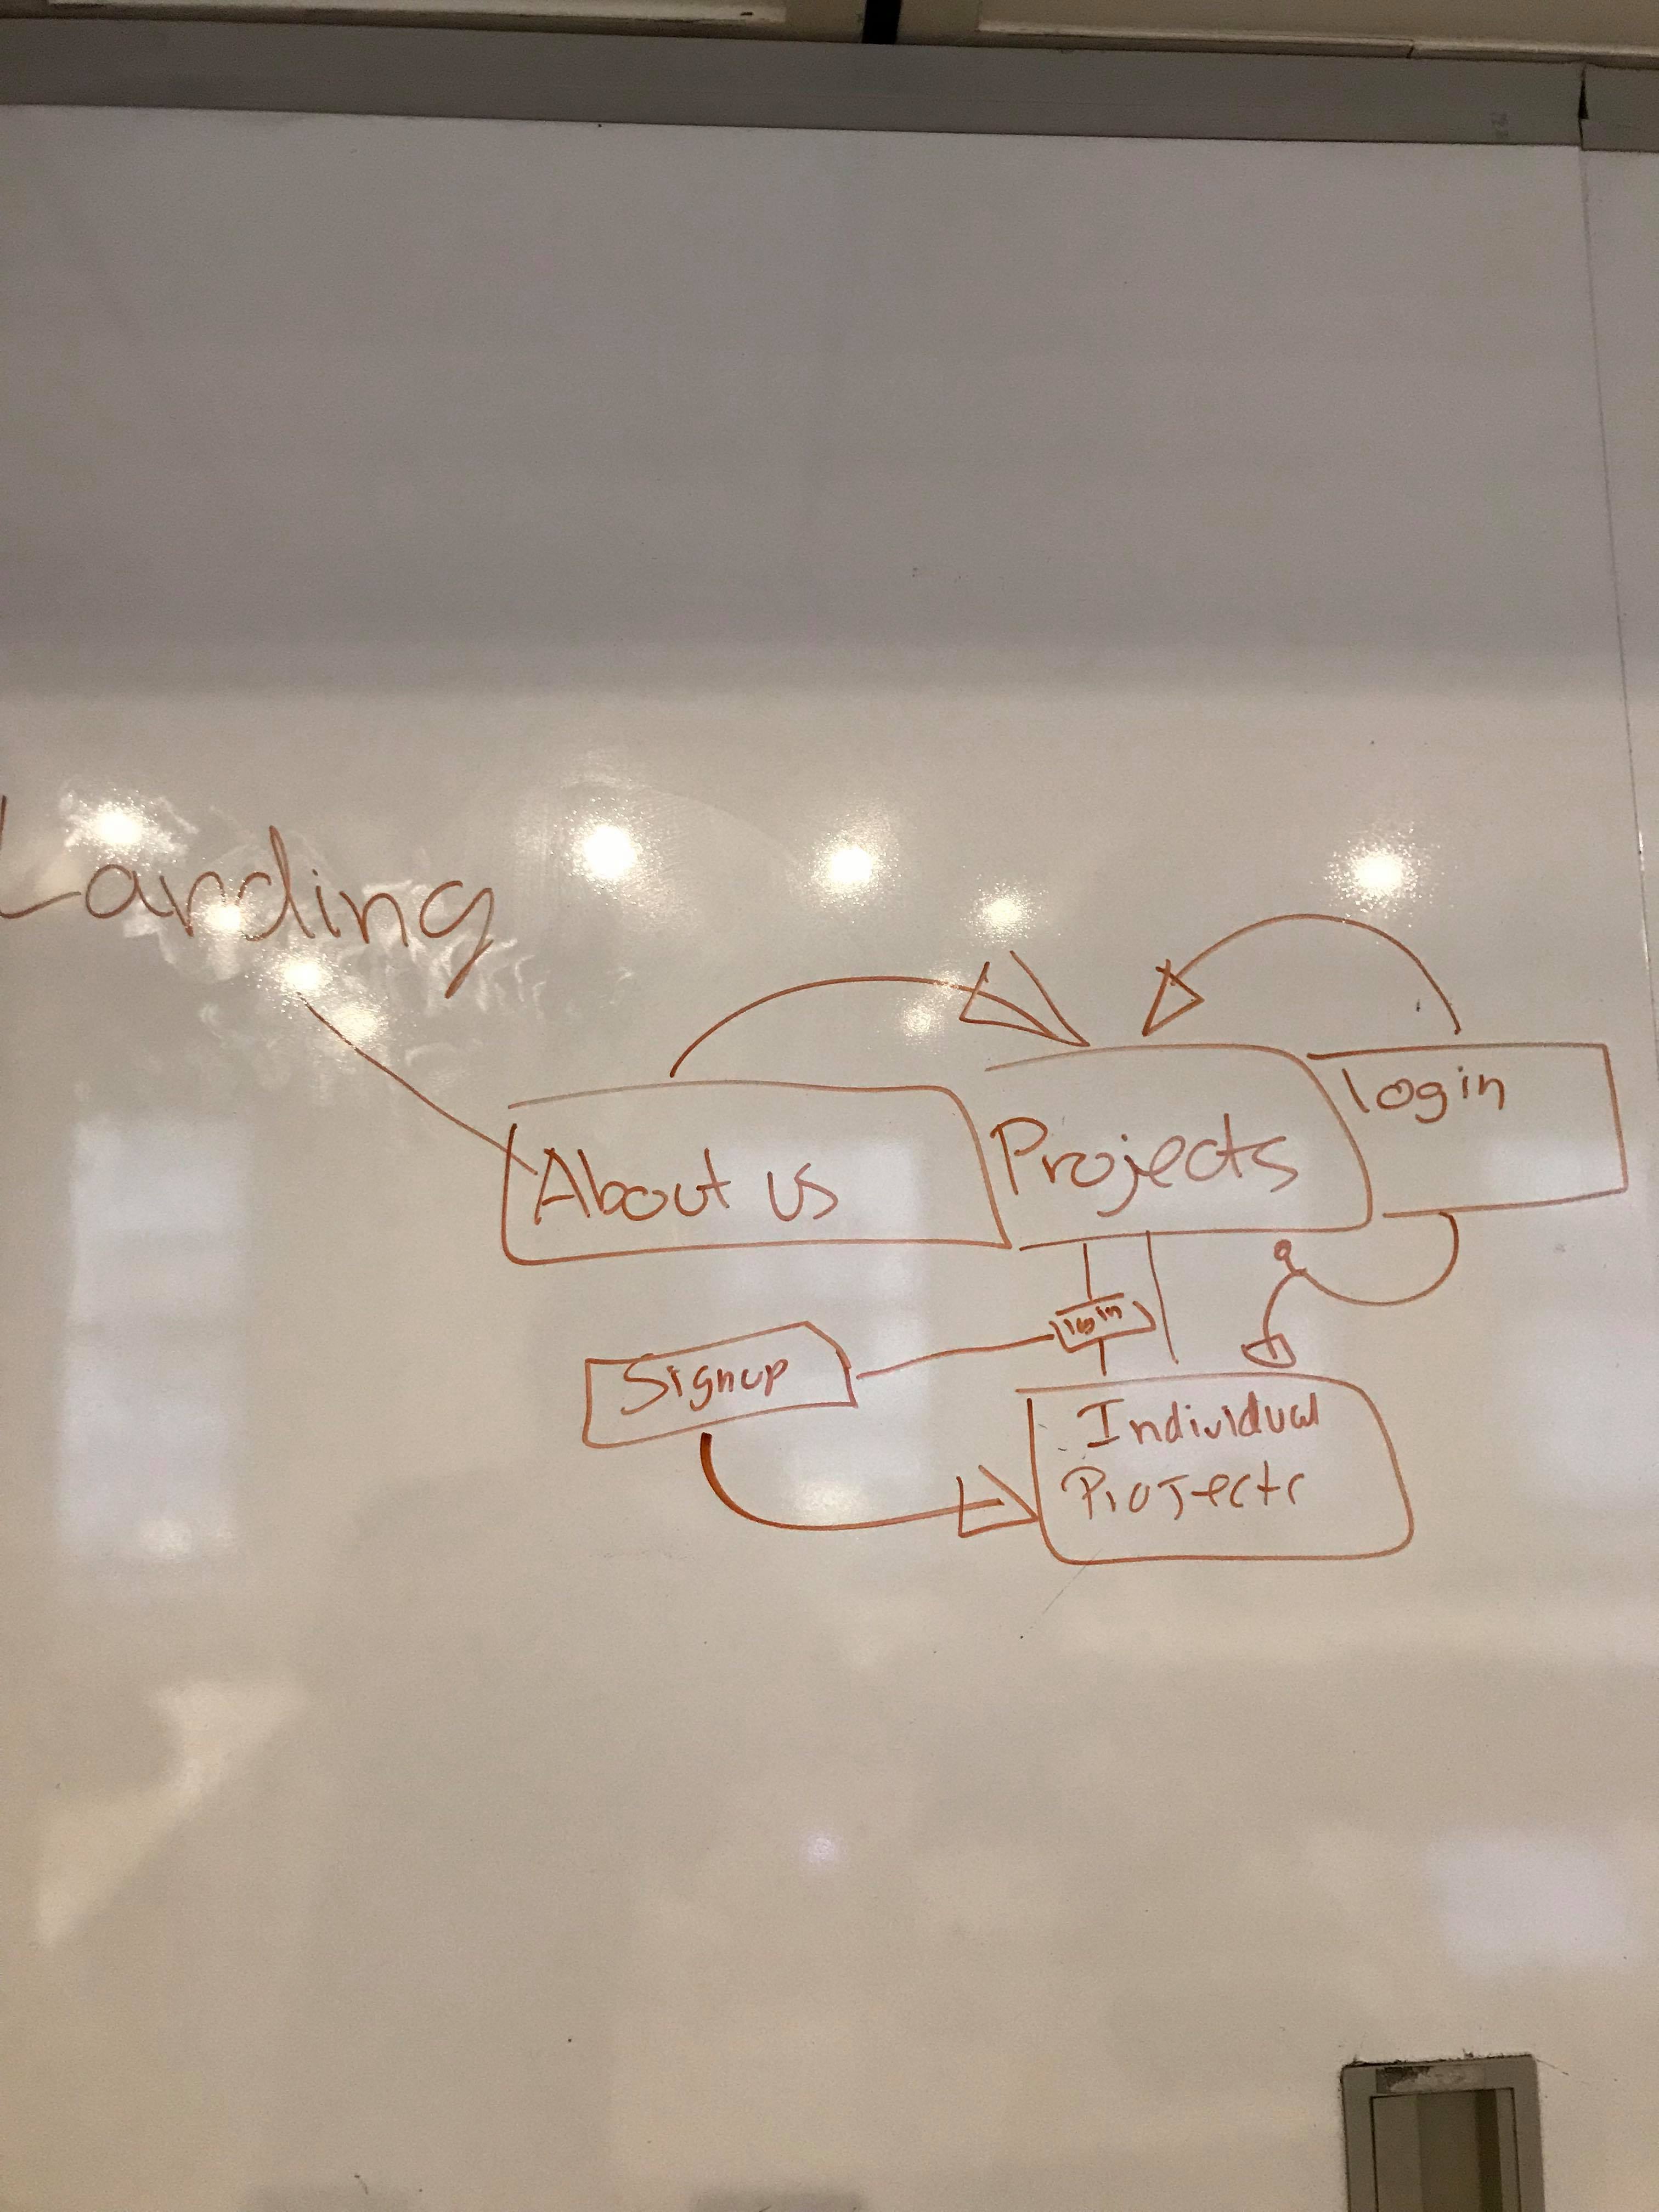 Landing
About us
Projects
login
login
Signup
Individual
Projects